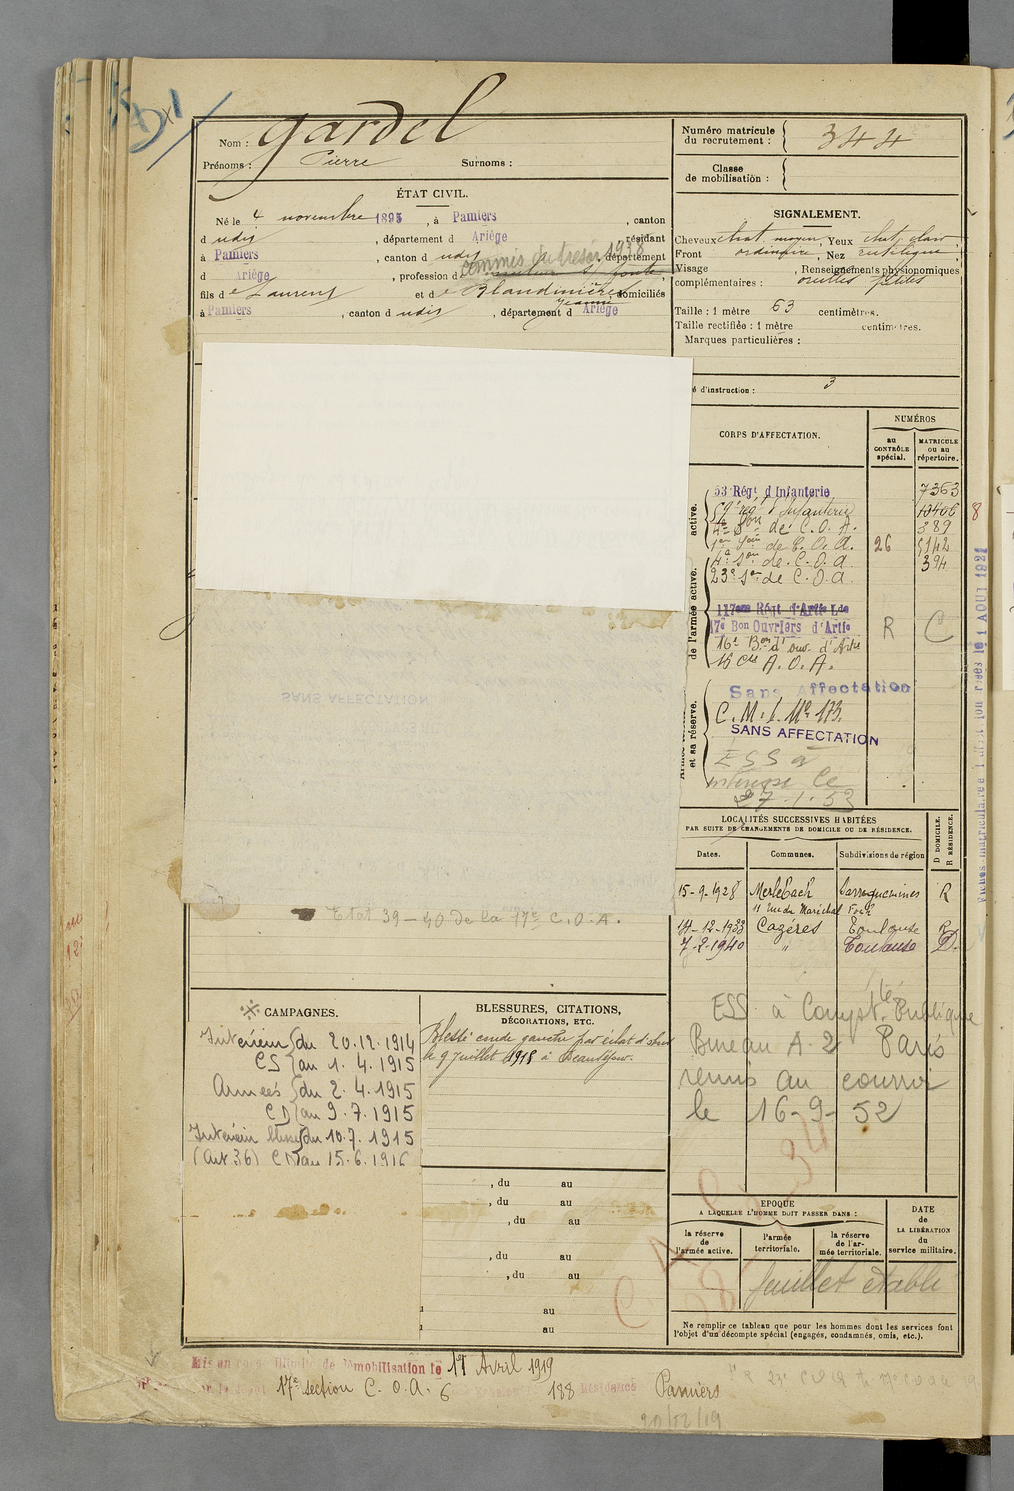 Nom : Gardel
Prénoms : Pierre Surnoms :
Numéro matricule du recrutement : 344
Classe de mobilisation :
ÉTAT CIVIL.
Né le 4 novembre 1895, à Pamiers, canton
d udit, département d Ariège, résidant
à Pamiers, canton d udit, département
commis du trésor 1938
d Ariège, profession de
fils de Laurent et de Blandinières, domiciliés
Jeanne
à Pamiers, canton d udit, département d Ariège
SIGNALEMENT.
Cheveux chat. moyen, Yeux chat. clair,
Front ordinaire, Nez rectiligne,
Visage , Renseignements physionomiques
complémentaires : oreilles petites
Taille : 1 mètre 63 centimètres.
Taille rectifiée : 1 mètre centimètres.
Marques particulières :
é d'instruction : 3
CORPS D'AFFECTATION.
NUMÉROS
au CONTRÔLE spécial.
MATRICULE OU AU répertoire.
active.
53 Régt d'Infanterie 7363
59e rég t d'Infanterie 13406
4e Son de C. O. A. 389
1ère Son de C. O. A. 26 5142
4e Son de C. O. A. 394
23e Son de C. O. A.
de l'armée active.
117ème Régt d'Artie Lde
17e Bon Ouvriers d'Artie R C
16e Bon d'ouv. d'Artie
15 Cie A. O. A.
et sa réserve.
Sans Affectation
C. M. I. No 173.
SANS AFFECTATION
ESS
le
27-1-53
SANS AFFECTATION
LOCALITÉS SUCCESSIVES HABITÉES
PAR SUITE DE CHANGEMENTS DE DOMICILE OU DE RÉSIDENCE.
Dates. Communes. Subdivisions de région D DOMICILE. R RÉSIDENCE.
15-9-1928 Merlebach Sarreguemines R
11 rue du Maréchal Foch
14-12-1933 Cazères Toulouse R
7-2-1940 " Toulouse D.
Etat 39-40 de la 17e C.O.A.
ESS à Compt. té Publique
Bureau A. 2 Paris
remis au courrier
le 16-9-52
CAMPAGNES.
Intérieur du 20.12.1914
CS au 1.4.1915
Armées du 2.4.1915
CD au 9.7.1915
Intérieur blessé du 10.7.1915
(Art 36) CD au 15.6.1916
BLESSURES, CITATIONS,
DÉCORATIONS, ETC.
Blessé coude gauche par éclat d'obus
le 9 juillet 1915 à
, du au
, du au
, du au
, du au
, du au
au
au
EPOQUE
A LAQUELLE L'HOMME DOIT PASSER DANS :
la réserve de l'armée active.
l'armée territoriale.
la réserve de l'armée territoriale.
DATE de LA LIBÉRATION du service militaire.
feuillet établi
Ne remplir ce tableau que pour les hommes dont les services font
l'objet d'un décompte spécial (engagés, condamnés, omis, etc.).
Mis en congé illimité de démobilisation le 17 Avril 1919
17e section C. O. A. 6 188 Résidence Pamiers
20/12/19